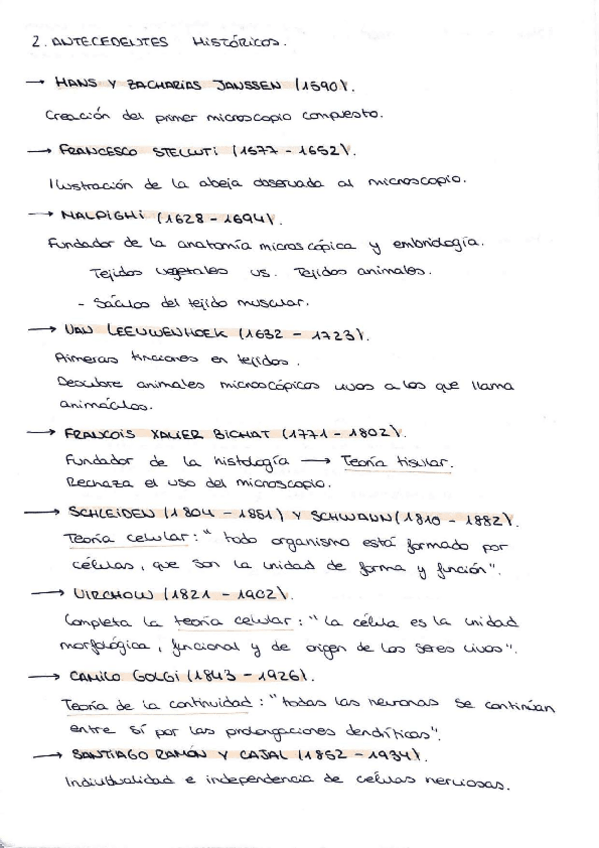 2. ANTECEDENTES HISTÓRICOS.
→ HANS Y ZACHARIAS JANSSEN (1590).
Creación del primer microscopio compuesto.
→ FRANCESCO STELLUTI (1577 - 1652).
Ilustración de la abeja observada al microscopio.
→ MALPIGHI (1628 - 1694).
Fundador de la anatomía microscópica y embriología.
Tejidos vegetales vs. Tejidos animales.
- Sáculos del tejido muscular.
→ VAN LEEUWENHOEK (1632 - 1723).
Primeras tinciones en tejidos.
Descubre animales microscópicos vivos a los que llama
animáculos.
→ FRANCOIS XAVIER BICHAT (1771 - 1802).
Fundador de la histología → Teoría tisular.
Rechaza el uso del microscopio.
→ SCHLEIDEN (1804 - 1881) Y SCHWANN (1810 - 1882).
Teoría celular: "todo organismo está formado por
células, que son la unidad de forma y función".
→ VIRCHOW (1821 - 1902).
Completa la teoría celular: "La célula es la unidad
morfológica, funcional y de origen de los seres vivos".
→ CAMILO GOLGI (1843 - 1926).
Teoría de la continuidad: "todas las neuronas se continúan
entre sí por las prolongaciones dendríticas".
→ SANTIAGO RAMÓN Y CAJAL (1852 - 1934).
Individualidad e independencia de células nerviosas.